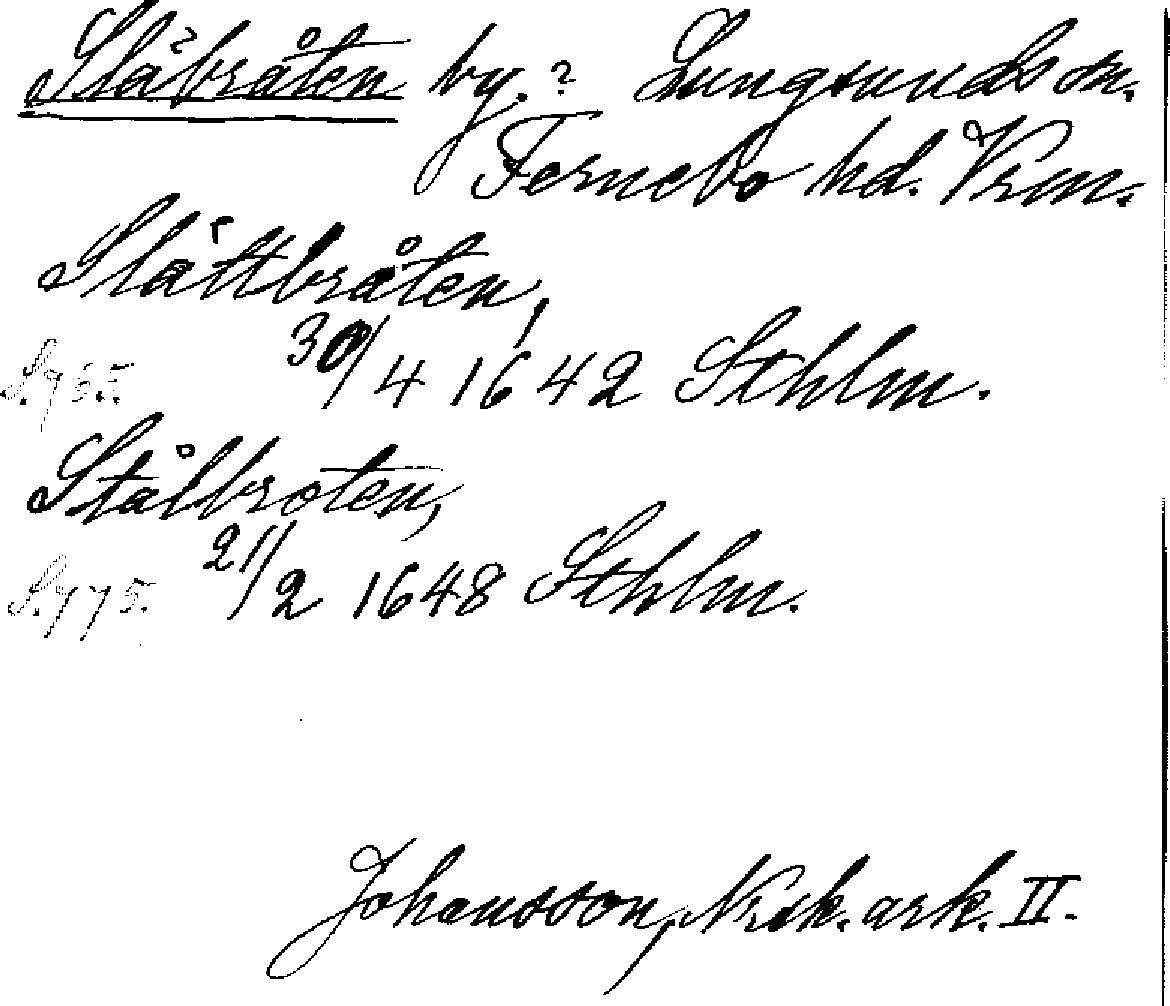 Slåbråten by.? Lungsunds sn.
Fernebo hd. Vrm.
Slåttbråten,
S. 965. 30/4 1642 Sthlm.
Stålbroten,
S. 975. 21/2 1648 Sthlm.
Johansson, Nrk. ark. II.